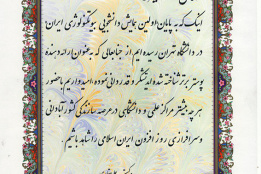 اینک که به پایان اولین همایش دانشجویی بیوتکنولوژی ایران
در دانشگاه تهران رسیده ایم از جنابعالی که به عنوان ارائه دهنده
پوستر برتر شناخته شده اید تشکر و قدردانی نموده و امیدواریم با حضور
هر چه بیشتر مراکز علمی و دانشگاهی در عرصه سازندگی کشور آبادانی
و سرافرازی روز افزون ایران اسلامی را شاهد باشیم.